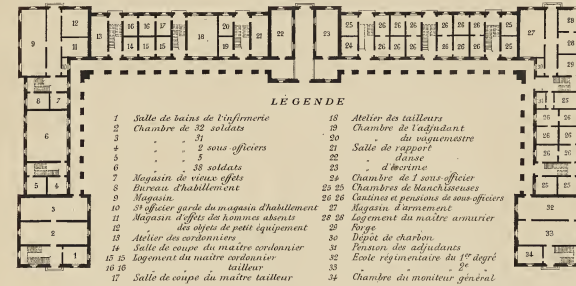 LÉGENDE
1 Salle de bains de l'infirmerie
2 Chambre de 32 soldats
3 " " 31
4 " " 2 sous-officiers
5 " " 5
6 " " 38 soldats
7 Magasin de vieux effets
8 Bureau d'habillement
9 Magasin
10 Ss officier garde du magasin d'habillement
11 Magasin d'effets des hommes absents
12 " des objets de petit équipement
13 Atelier des cordonniers
14 Salle de coupe du maître cordonnier
15 15 Logement du maître cordonnier
16 16 " " tailleur
17 Salle de coupe du maître tailleur
18 Atelier des tailleurs
19 Chambre de l'adjudant
20 " du vaguemestre
21 Salle de rapport
22 " danse
23 " d'escrime
24 Chambre de 1 sous-officier
25 25 Chambres de blanchisseuses
26 26 Cantines et pensions de sous-officiers
27 Magasin d'armement
28 28 Logement du maître armurier
29 Forge
30 Dépôt de charbon
31 Pension des adjudants
32 Ecole régimentaire du 1er degré
33 " " 2e "
34 Chambre du moniteur général